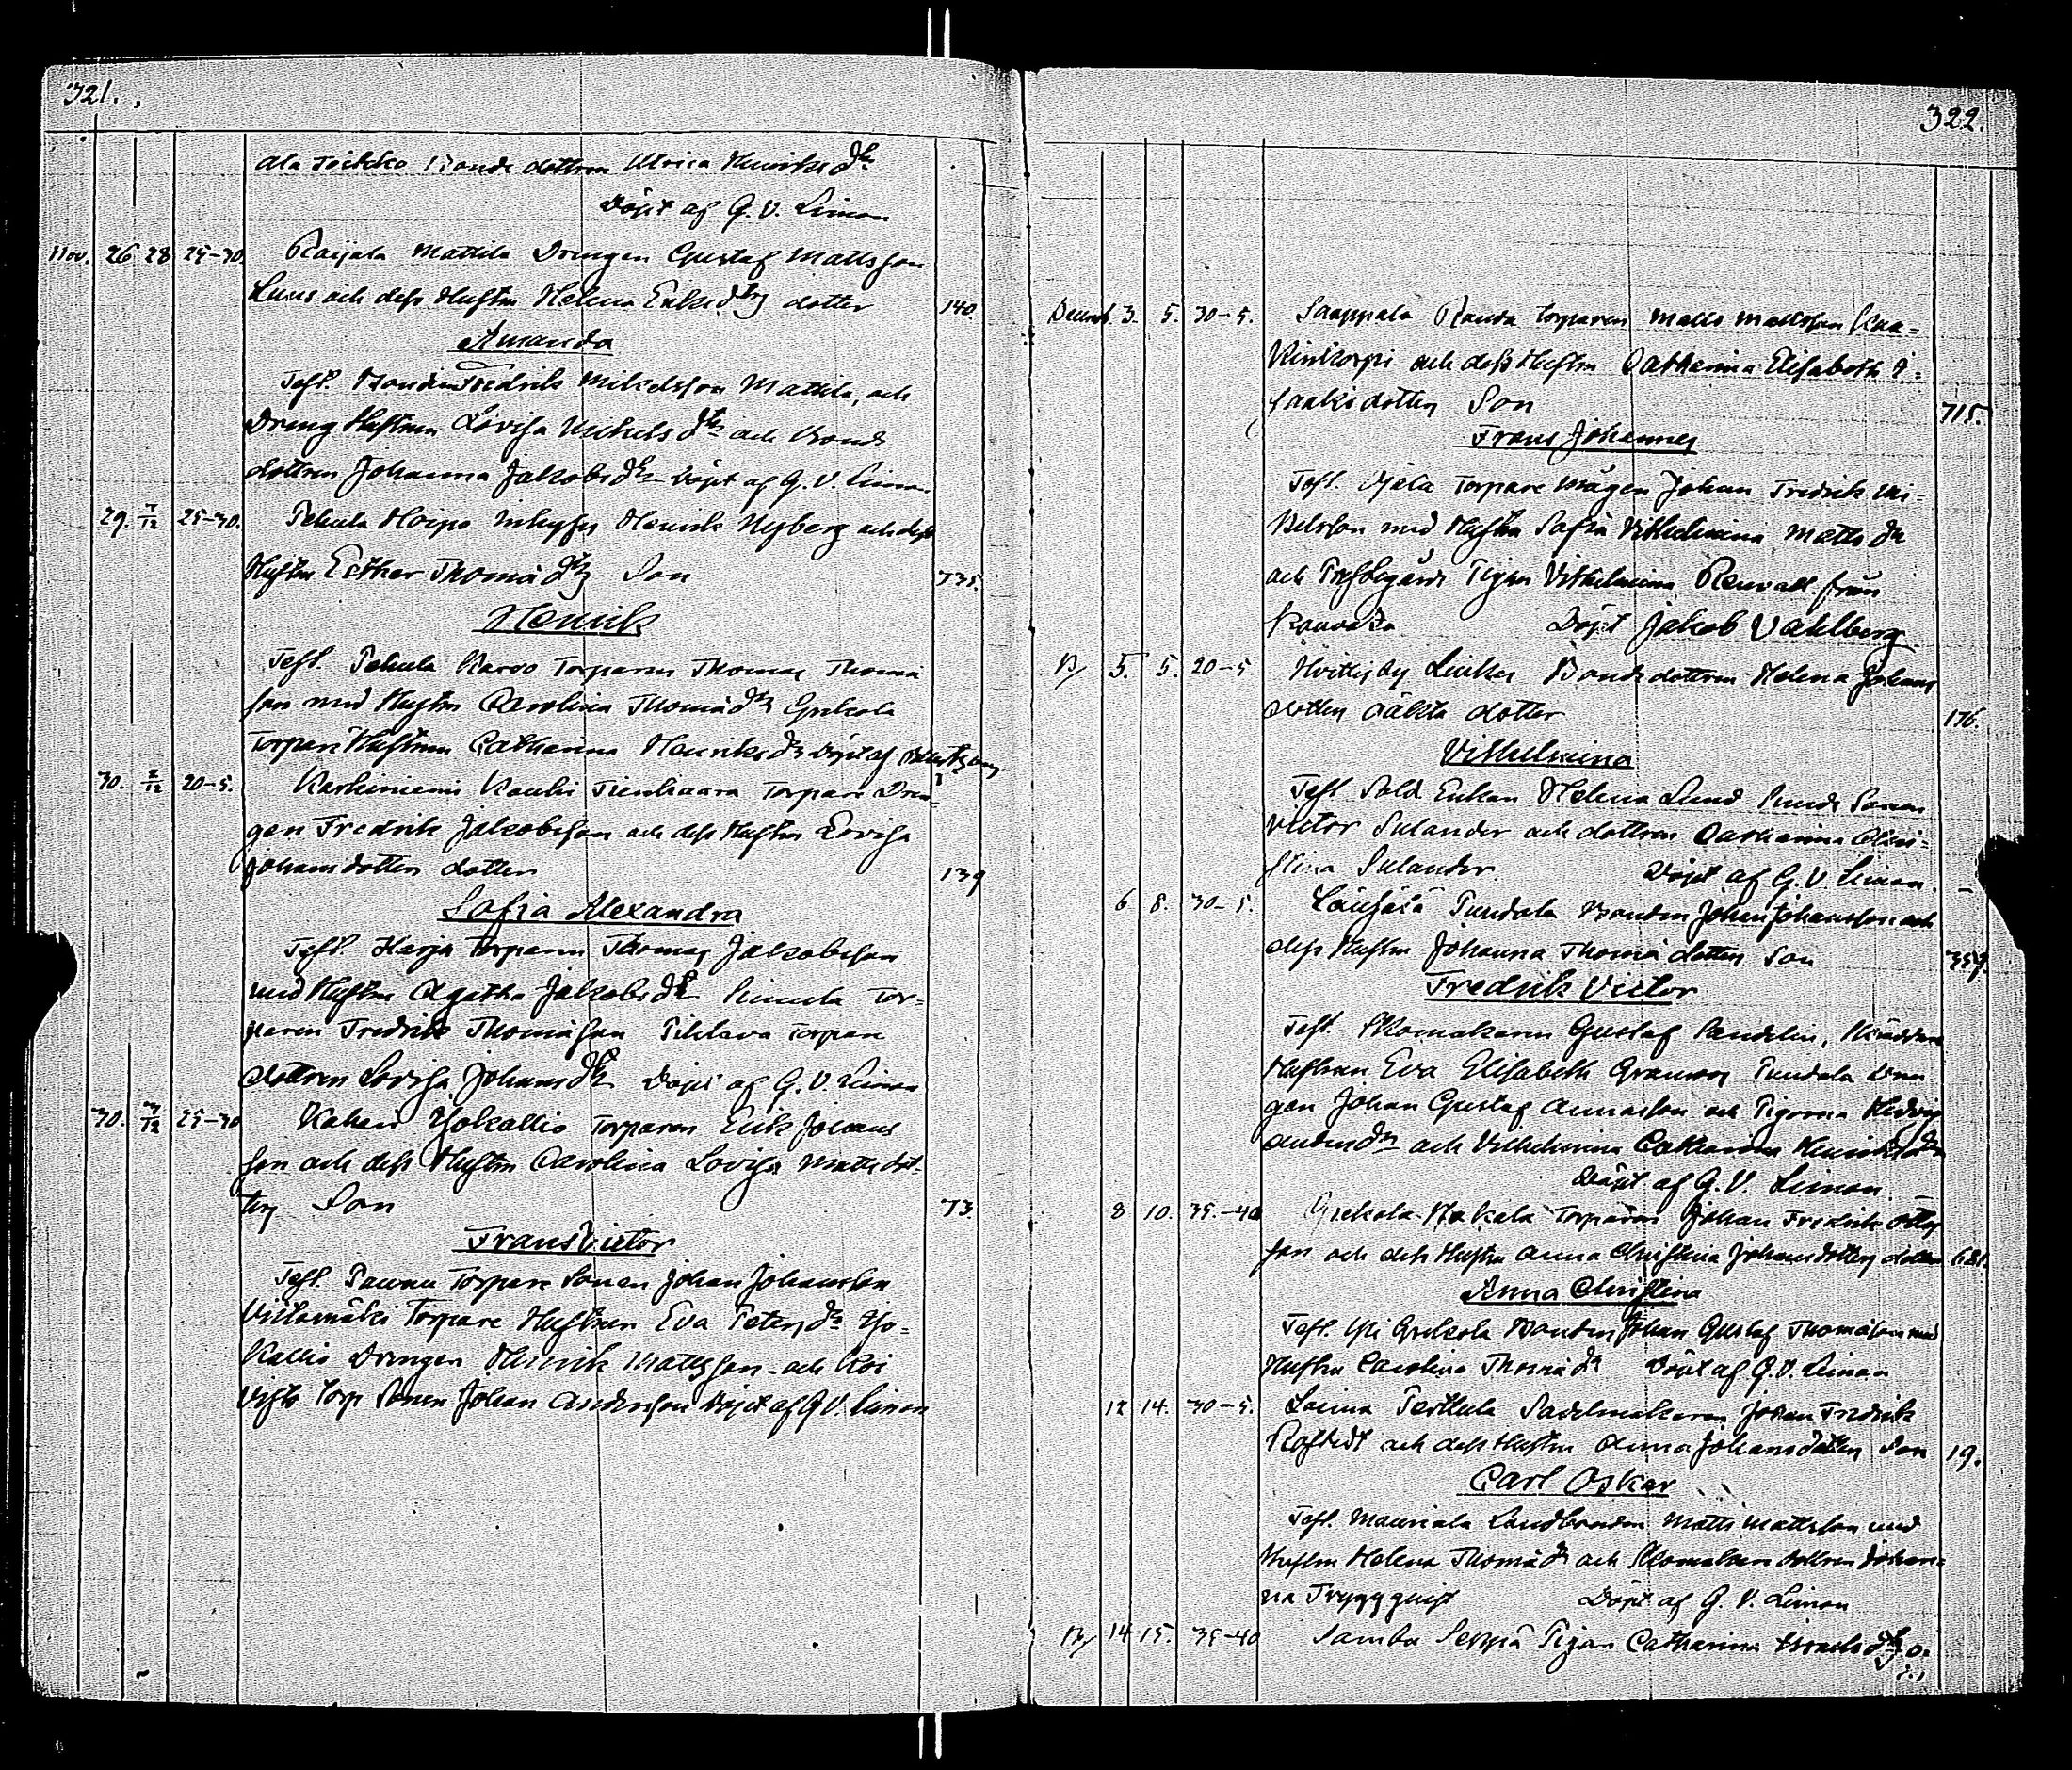 321.
Ala Bonde dottren Ulrica Henriks dr
Döpt af G. V. Limon
Nov. 26 28 25-30. Raijala Mattila Drengen Gustaf Mattsson
och dess Hustru Helena Eriks dr dotter 140.
Amanda
Test. Bonden Fredrik Mikelsson Mattila, och
Dreng Hustrun Lovisa Mikels dr och Bonde
dottren Johanna Jakobs dr Döpt af G. V. Limon
29. 1/12 25-30. Pekula Henrik Nyberg och dess
Hustru Esther Thomä dr Son 735.
Henrik
Test. Pekula Torparen Thomas Thomä
son med Hustru Carolina Thomä dr Grekola
Torpare Hustrun Catharina Henriks dr Döpt af
30. 2/12 20-5. Karhiniemi Kauhi Torpare Dren=
gen Fredrik Jakobsson och dess Hustru Lovisa
Johans dotters dotter 139
Sofia Alexandra
Test. Harju Torparen Thomas Jakobsson
med Hustru Agatha Jakobs dr Tor=
paren Fredrik Thomäson Torpare
dottren Lovisa Johans dr Döpt af G. V. Limon
30. 3/12 25-30 Yokallio Torparen Erik Johans
son och dess Hustru Carolina Lovisa Matts dot=
ters Son 73.
Frans Victor
Test. Torpare Sonen Johan Johansson
Torpare Hustrun Eva Peters dr Yo=
kallio Drengen Henrik Mattsson och
Torp Sonen Johan Andersson Döpt af G. V. Limon
322.
Decemb. 3. 5. 30-5. Sauppala Rauda Torparen Matts Mattsson
och dess Hustru Catharina Elisabeth I=
saaks dotters Son 715.
Frans Johannes
Test. Torpare Mågen Johan Fredrik Mi=
kelsson med Hustru Sofia Vilhelmina Matts dr
och Prestegårds Pigan Vilhelmina från
Döpt Jakob Vahlberg
5. 5. 20-5. Bonde dottren Helena Johans
dotters oäkta dotter 176.
Vilhelmina
Test. Sold Enkan Helena Lund Sonen
Victor Sulander och dottren Catharina Chri=
stina Sulander. Döpt af G. V. Limon.
6 8. 30-5. Pundola Bonden Johan Johansson och
dess Hustru Johanna Thomä dotters Son 359.
Fredrik Victor
Test. Skomakaren Gustaf Sandelin, Skräddare
Hustrun Eva Elisabeth Granroos Pundola Dren
gen Johan Gustaf och Pigorna Hedvig
Anders dr och Vilhelmina Catharina Henriks dr
Döpt af G. V. Limon.
8 10. 35.-40 Grekola Torparen Johan Fredrik
son och dess Hustru Anna Christina Johans dotters dotter 681.
Anna Christina
Test. Yli Grekola Bonden Johan Gustaf Thomäson med
Hustru Carolina Thomä dr Döpt af G. V. Limon
12 14. 30-5. Loima Perttula Sadelmakaren Johan Fredrik
och dess Hustru Anna Johans dotters Son 19.
Carl Oskar
Test. Mauriala Landbonden Matts Mattsson med
Hustru Helena Thomä dr och Skomakare dottren Johan=
na Tryggquist Döpt af G. V. Limon
14 15. 35-40 Samba Seppä Pigan Catharina